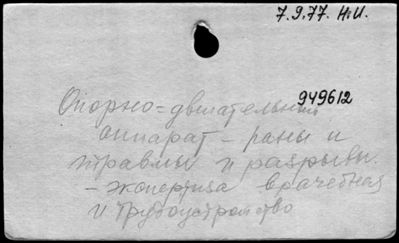 7.9.77. Н.И.
949612
Опорно-двигательный
аппарат - раны и
травмы и разрывы.
- экспертиза врачебная
и трудоустройство